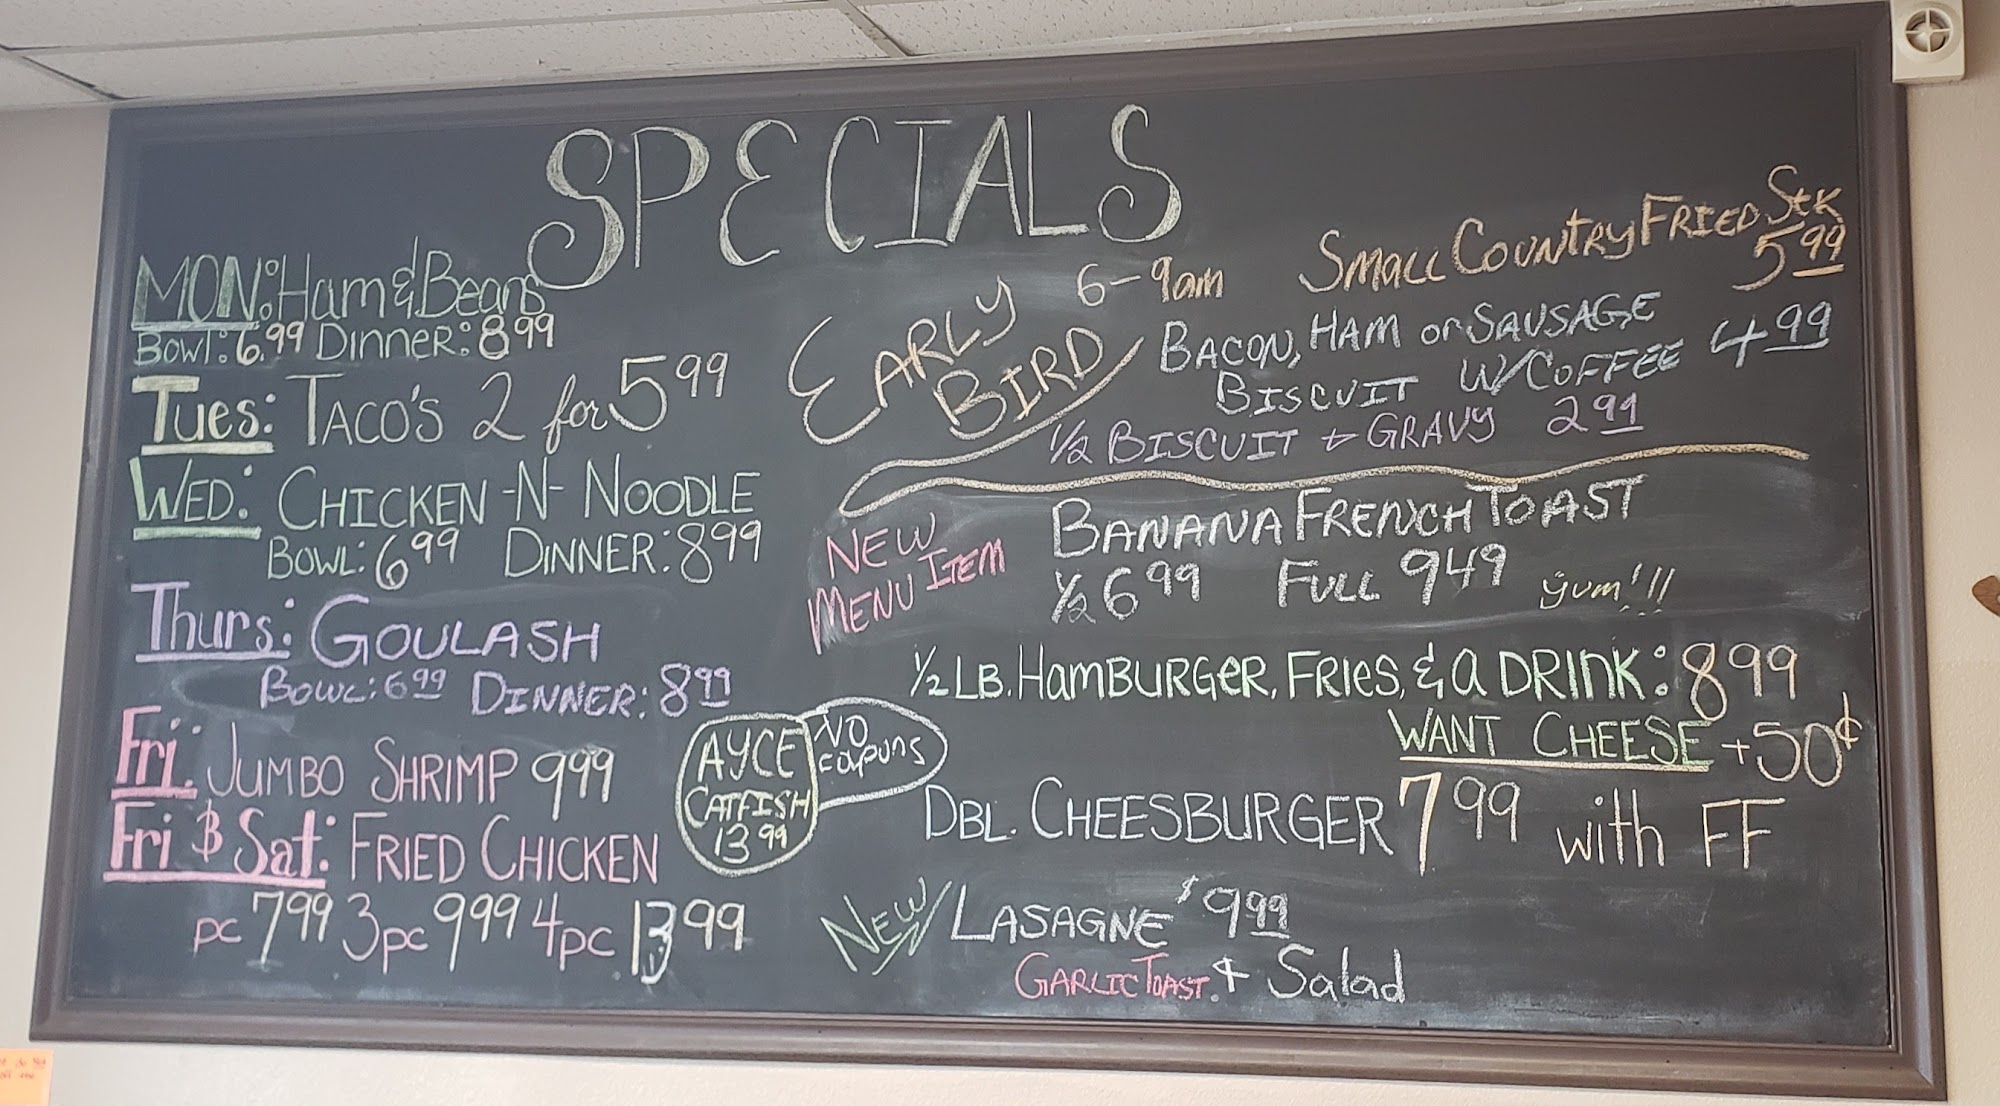 SPECIALS
MON: Ham & Beans
Bowl: 6.99 Dinner: 8.99
Tues: TACO'S 2 for 5 99
WED: CHICKEN -N- NOODLE
BOWL: 6 99 DINNER: 8 99
Thurs: GOULASH
BOWL: 6 99 DINNER: 8 99
Fri: JUMBO SHRIMP 9 99
Fri & Sat: FRIED CHICKEN
pc 7 99 3pc 9 99 4pc 13 99
AYCE
CATFISH
13 99
NO
coupons
EARLY
BIRD
6-9am
SMALL COUNTRY FRIED STK
5 99
BACON, HAM or SAUSAGE
BISCUIT W/COFFEE 4 99
1/2 BISCUIT & GRAVY 2 99
NEW
MENU ITEM
BANANA FRENCH TOAST
1/2 6 99 FULL 9 49 yum!!!
1/2 LB. HAMBURGER, FRIES, & a DRINK: 8 99
WANT CHEESE +50¢
DBL. CHEESBURGER 7 99 with FF
NEW LASAGNE $9 99
GARLIC TOAST. & Salad